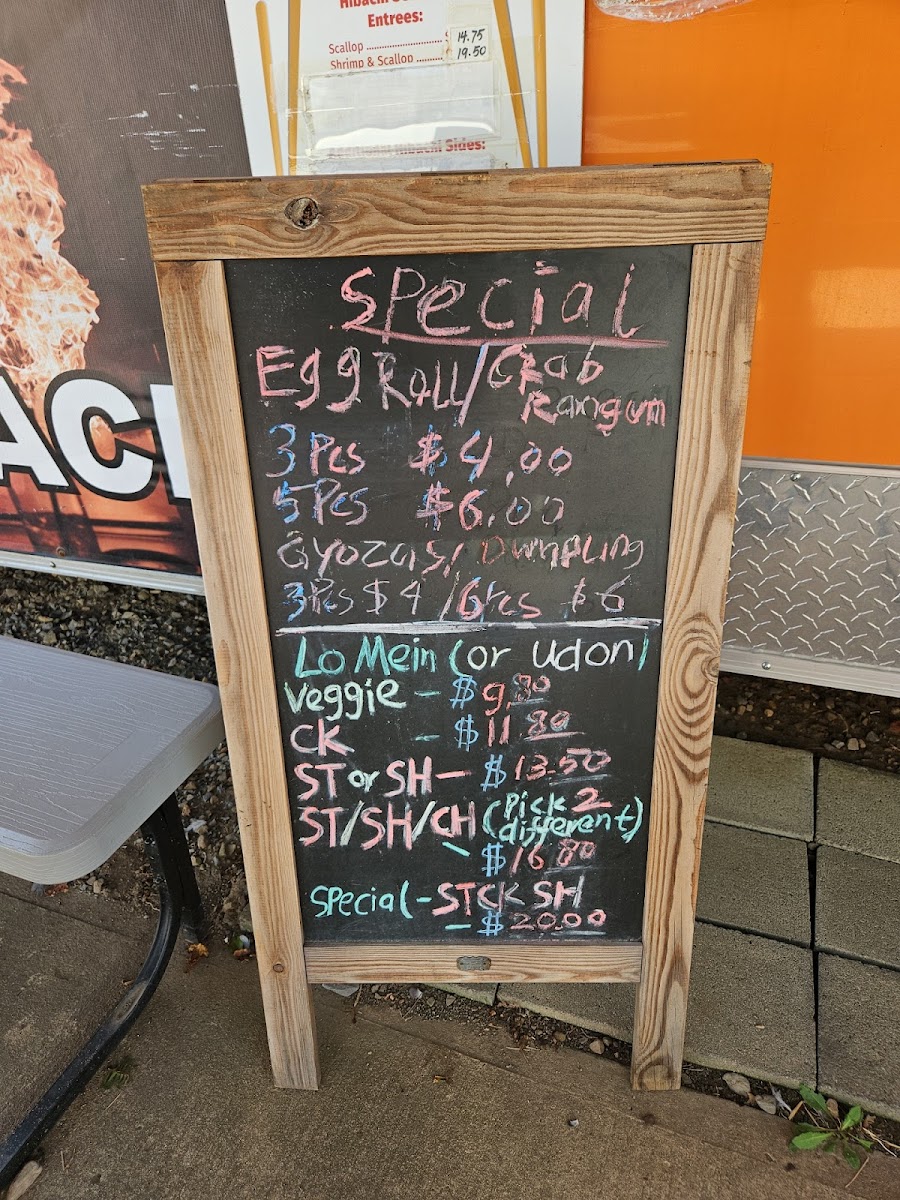 Entrees:
Scallop .................... 14.75
Shrimp & Scallop .......... 19.50
Hibachi Sides:
AC
Special
Egg Roll/Crab
Rangum
3 Pcs $4.00
5 Pcs $6.00
Gyozas/ Dumpling
3Pcs $4 /6Pcs $6
Lo Mein (or udon)
Veggie - $9.80
CK - $11.80
ST or SH - $13.50
ST/SH/CH (Pick 2
different)
- $16.80
Special - STCK SH
- $20.00